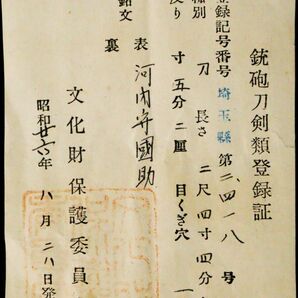 銃砲刀剣類登録証
登録記号番号 埼玉縣 第二四一八号
種別 刀 長さ 二尺四寸四分
反り 寸五分二厘 目くぎ穴 一
銘文 表 河内守國助
裏
昭和廿六年八月二八日発
文化財保護委員